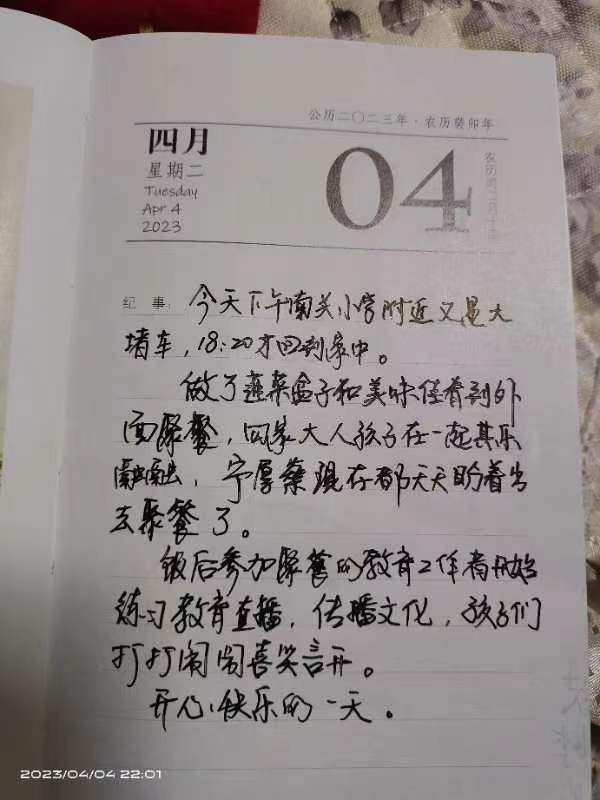 公历二〇二三年·农历癸卯年
四月
星期二
Tuesday
Apr 4
2023
04
纪 事：今天下午南关小学附近又是大
堵车，18:20才回到家中。
做了韭菜盒子和美味佳肴到外
面聚餐，四家大人孩子在一起其乐
融融，宁厚燊现在都天天盼着出
去聚餐了。
饭后参加聚餐的教育工作者开始
练习教育直播，传播文化，孩子们
打打闹闹喜笑言开。
开心快乐的一天。
2023/04/04 22:01